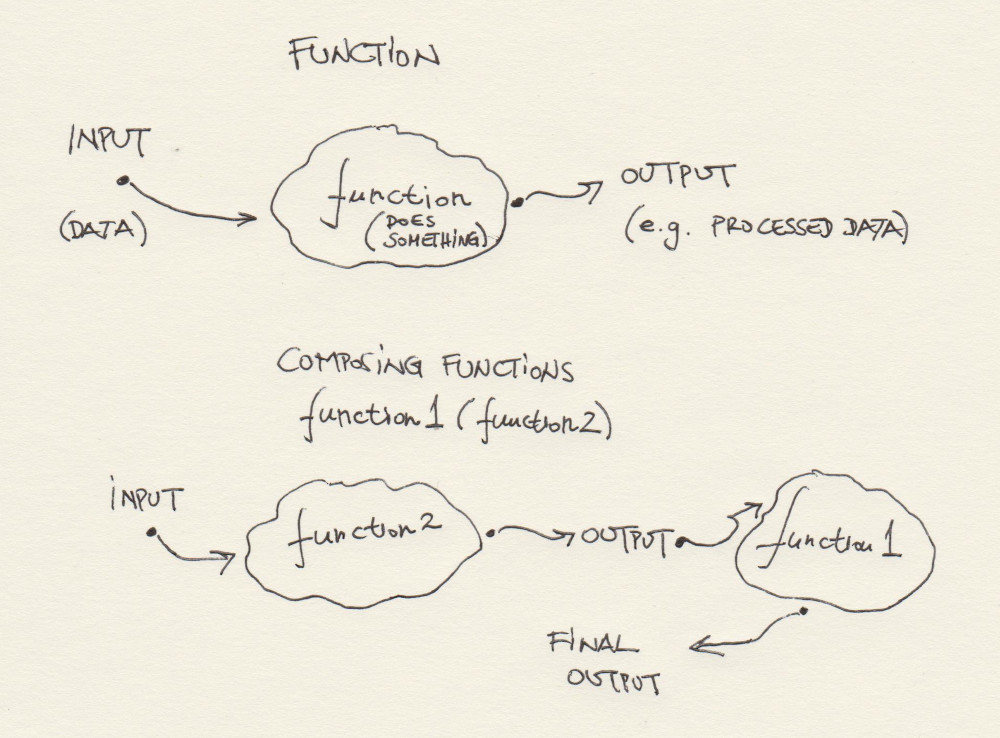 FUNCTION
INPUT
(DATA)
function
(DOES
SOMETHING)
OUTPUT
(e.g. PROCESSED DATA)
COMPOSING FUNCTIONS
function1 (function2)
INPUT
function2
OUTPUT
function1
FINAL
OUTPUT